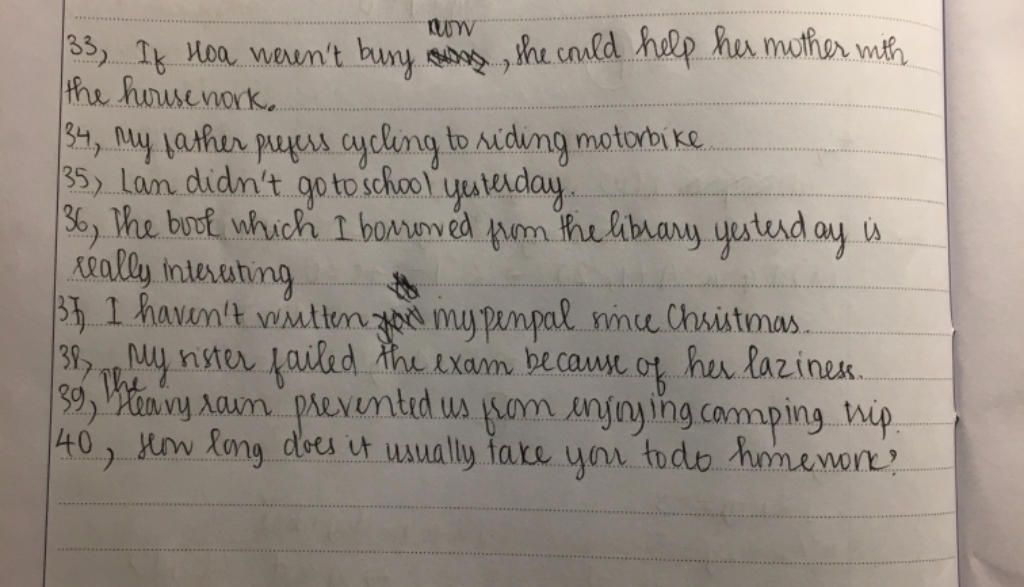 now
33, If Hoa weren't busy, she could help her mother with
the housework.
34, My father prefers cycling to riding motorbike
35, Lan didn't go to school yesterday.
36, The book which I borrowed from the library yesterday is
really interesting
37, I haven't written my penpal since Christmas.
38, My sister failed the exam because of her laziness.
39, The Heavy rain prevented us from enjoying camping trip.
40, How long does it usually take you to do homework?